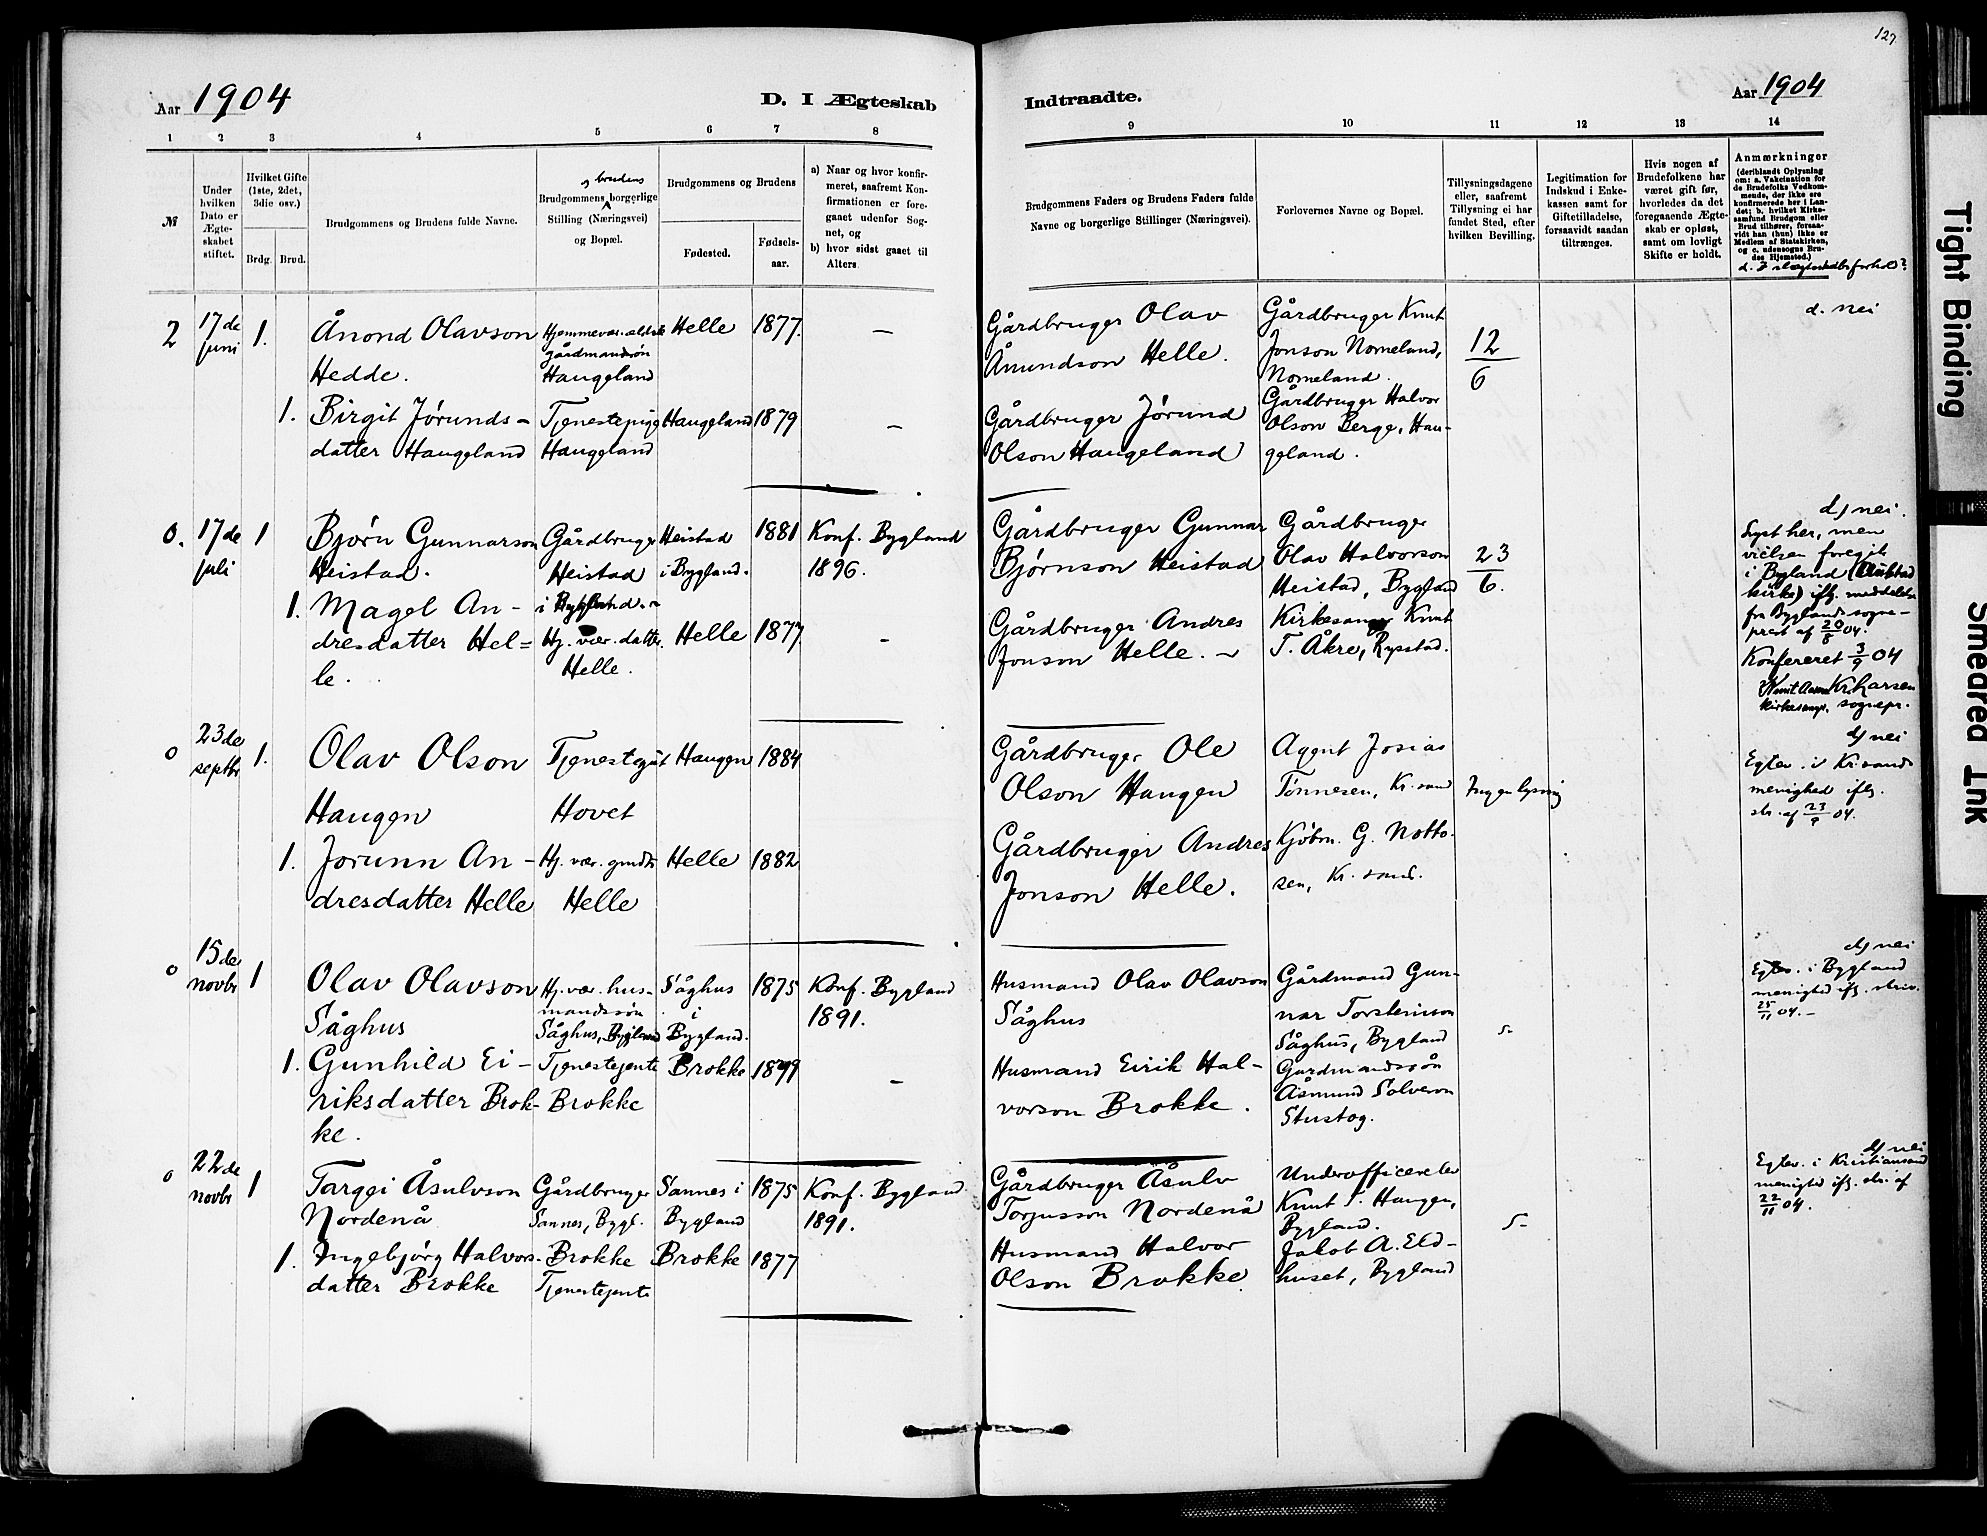 127.
Aar 1904
D. I Ægteskab
Indtraadte.
Aar 1904
1 2 3 4 5 6 7 8
9 10 11 12 13 14
№
Under hvilken Dato er Ægteskabet stiftet.
Hvilket Gifte (1ste, 2det, 3die osv.)
Brdg. Brud.
Brudgommens og Brudens fulde Navne.
Brudgommens og brudens borgerlige Stilling (Næringsvei) og Bopæl.
Brudgommens og Brudens
Fødested.
Fødsels-aar.
a) Naar og hvor konfirmeret, saafremt Konfirmationen er foregaaet udenfor Sognet, og
b) hvor sidst gaaet til Alters.
Brudgommens Faders og Brudens Faders fulde Navne og borgerlige Stillinger (Næringsvei).
Forlovernes Navne og Bopæl.
Tillysningsdagene eller, saafremt Tillysning ei har fundet Sted, efter hvilken Bevilling.
Legitimation for Indskud i Enkekassen samt for Giftetilladelse, forsaavidt saadan tiltrænges.
Hvis nogen af Brudefolkene har været gift før, hvorledes da det foregaaende Ægteskab er opløst, samt om lovligt Skifte er holdt.
Anmærkninger
(deriblandt Oplysning om: a. Vakcination for de Brudefolks Vedkommende, der ikke ere konfirmerede her i Landet; b. hvilket Kirkesamfund Brudgom eller Brud tilhører, forsaavidt han (hun) ikke er Medlem af Statskirken, og c. udensogns Brudes Hjemsted.)
d. I slægtskabsforhold?
2 17de juni 1. Ånond Olavson Hedde.
Hjemmevær. ældste gårdmandssøn Haugeland
Helle 1877. –
Gårdbruger Olav Åmundson Helle.
Gårdbruger Knut Jonson Nomeland, Nomeland.
12/6
d. nei
1. Birgit Jørundsdatter Haugeland
Tjenestepige Haugeland
Haugeland 1879 –
Gårdbruger Jørund Olson Haugeland
Gårdbruger Halvor Olson Berge, Haugeland.
0. 17de juli 1 Bjørn Gunnarson Heistad.
Gårdbruger Heistad i Bygland.
Heistad i Bygland. 1881 Konf. Bygland 1896.
Gårdbruger Gunnar Bjørnson Heistad
Gårdbruger Olav Halvorson Heistad, Bygland
23/6.
d) nei.
Lyst her, men vielsen foregik i Bygland (Austad kirke) iflg. meddelelse fra Byglands sogneprest af 20/8 04.
Konfereret 3/9 04
Kr. Larsen sognepr.
1. Magel Andresdatter Helle.
Hj. vær. datter Helle.
Helle 1877 –
Gårdbruger Andres Jonson Helle.
Kirkesanger Knut T. Åkre, Rysstad.
0 23de septbr 1. Olav Olson Haugen
Tjenestegut Hovet
Haugen 1884
Gårdbruger Ole Olson Haugen
Agent Josias Tønnesen, Kr.sand
Ingen lysning
d) nei
Egtev. i Kr.sands menighed iflg. skr. af 23/9 04.
1. Jorunn Andresdatter Helle
Hj. vær. gmdtr Helle
Helle 1882
Gårdbruger Andres Jonson Helle.
Kjøbm. G. Nottosen, Kr. sand.
0 15de novbr 1 Olav Olavson Såghus
Hj. vær. husmandssøn Såghus, Bygland
Såghus i Bygland. 1875 Konf. Bygland 1891.
Husmand Olav Olavson Såghus
Gårdmand Gunnar Torsteinson Såghus, Bygland
s-
d) nei
Egtev. i Bygland menighed iflg. skriv. 25/11 04.-
1. Gunhild Eiriksdatter Brokke.
Tjenestejente Brokke
Brokke 1879 –
Husmand Eirik Halvorson Brokke.
Gardmandssøn Åsmund Solveson Stustog.
0 22de novbr 1 Targei Åsulvson Nordenå
Gårdbruger Sannes, Bygl.
Sannes i Bygland 1875 Konf. Bygland 1891.
Gårdbruger Åsulv Torjusson Nordenå
Underofficerelev Knut T. Haugen, Bygland.
s-
d) nei
Egtev. i Kristiansand menighed iflg. skr. af 22/11 04.
1. Ingebjørg Halvorsdatter Brokke
Brokke Tjenestejente
Brokke 1877
Husmand Halvor Olson Brokke.
Jakob A. Eldhuset, Bygland
Tight Binding
Smeared Ink